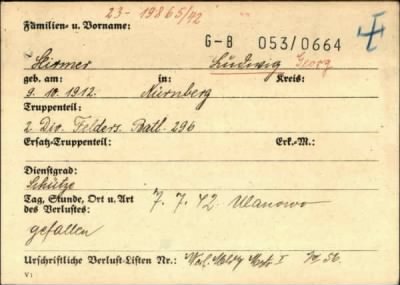 23 - 19865/42
Familien- u. Vorname:
G-B 053/0664
Stirmer Ludwig Georg
geb. am: in: Kreis:
9. 10. 1912. Nürnberg
Truppenteil:
2. Div. Felders. Batl. 296
Ersatz-Truppenteil: Erk.-M.:
Dienstgrad:
Schütze
Tag, Stunde, Ort u. Art
des Verlustes: 7. 7. 42 Ulanowo
gefallen
Urschriftliche Verlust-Listen Nr.: I
V: